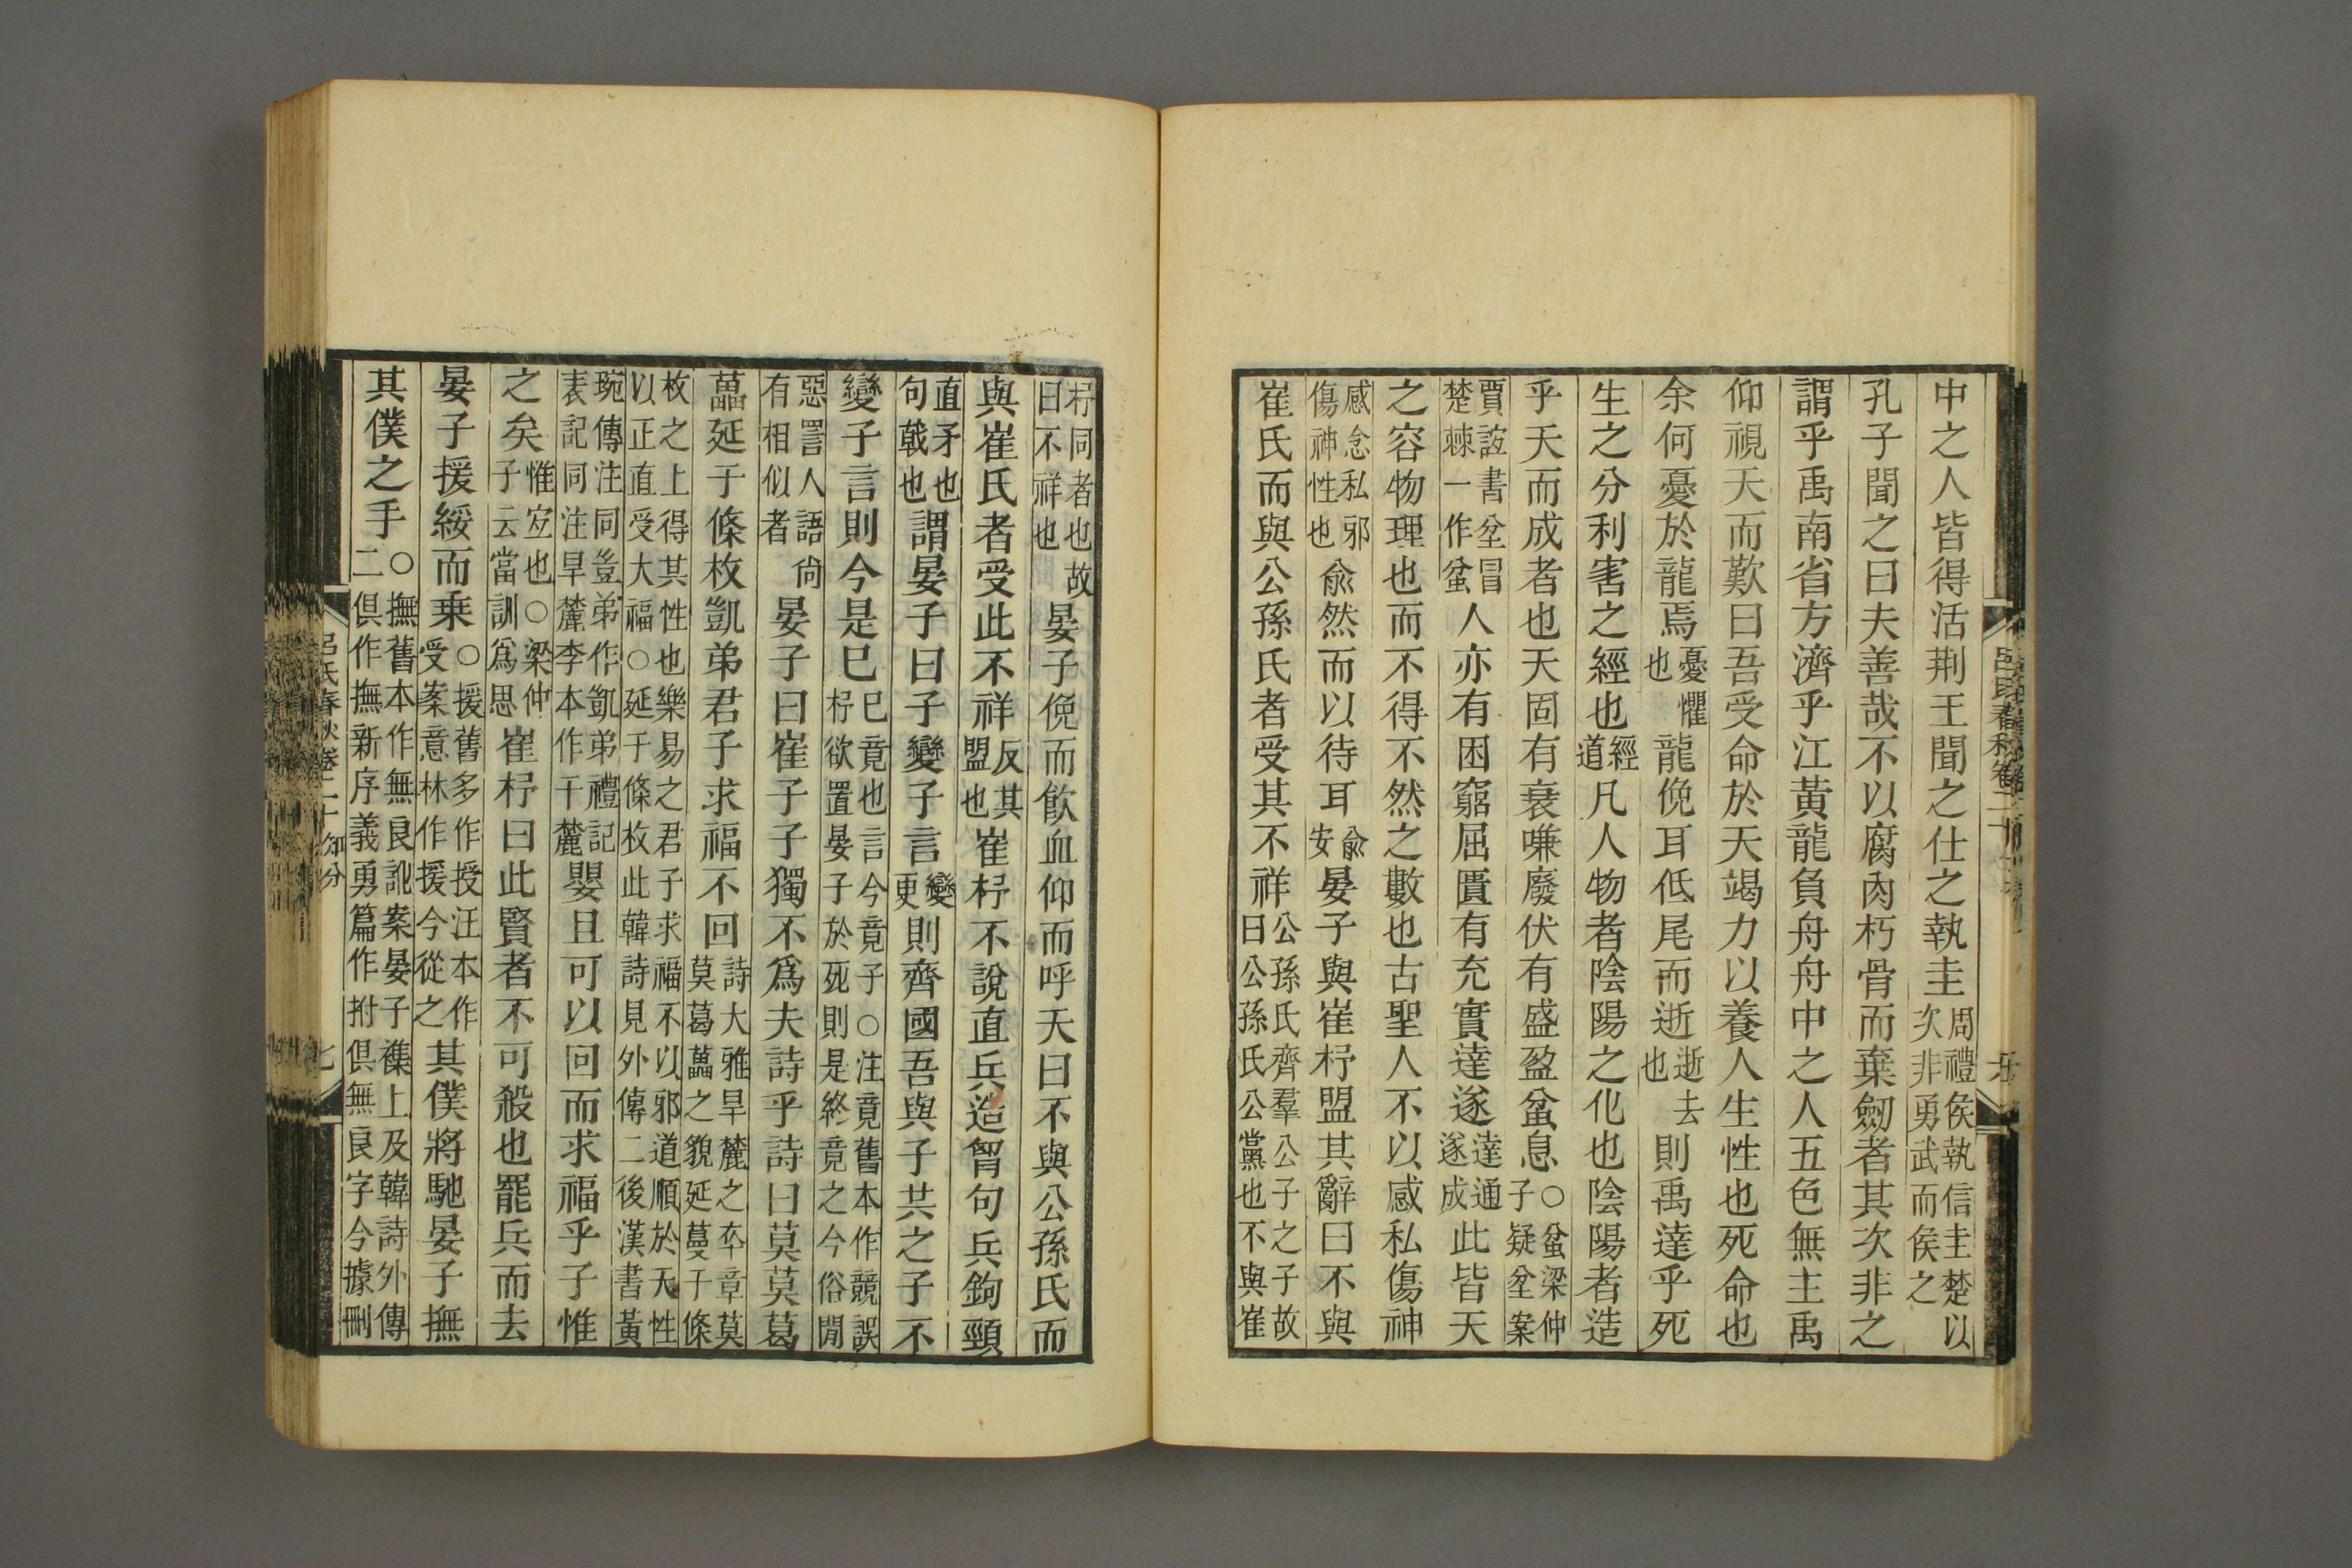 中之人皆得活荆王聞之仕之執圭周禮侯執信圭楚以次非勇武而侯之
孔子聞之曰夫善哉不以腐肉朽骨而棄劒者其次非之
謂乎禹南省方濟乎江黃龍負舟舟中之人五色無主禹
仰視天而歎曰吾受命於天竭力以養人生性也死命也
余何憂於龍焉憂懼也龍俛耳低尾而逝逝去也則禹達乎死
生之分利害之經也經道凡人物者陰陽之化也陰陽者造
乎天而成者也天固有衰嗛廢伏有盛盈蚠息○蚠梁仲子疑坌案
賈誼書坌冒楚棘一作蚠人亦有困窮屈匱有充實達遂達通遂成此皆天
之容物理也而不得不然之數也古聖人不以感私傷神
感念私邪傷神性也兪然而以待耳兪安晏子與崔杼盟其辭曰不與
崔氏而與公孫氏者受其不祥公孫氏齊羣公子之子故曰公孫氏公黨也不與崔
杼同者也故曰不祥也晏子俛而飮血仰而呼天曰不與公孫氏而
與崔氏者受此不祥反其盟也崔杼不說直兵造胷句兵鉤頸
直矛也句戟也謂晏子曰子變子言變更則齊國吾與子共之子不
變子言則今是已已竟也言今竟子○注竟舊本作競誤杼欲置晏子於死則是終竟之今俗閒
惡詈人語尙有相似者晏子曰崔子子獨不爲夫詩乎詩曰莫莫葛
藟延于條枚凱弟君子求福不回詩大雅旱麓之卒章莫莫葛藟之貌延蔓于條
枚之上得其性也樂易之君子求福不以邪道順於天性以正直受大福○延于條枚此韓詩見外傳二後漢書黃
琬傳注同豈弟作凱弟禮記表記同注旱麓李本作干麓嬰且可以回而求福乎子惟
之矣惟宐也○梁仲子云當訓爲思崔杼曰此賢者不可殺也罷兵而去
晏子援綏而乘○援舊多作授汪本作受案意林作援今從之其僕將馳晏子撫
其僕之手○撫舊本作無良訛案晏子襍上及韓詩外傳二俱作撫新序義勇篇作拊俱無良字今據刪
呂氏春秋卷二十 知分
七